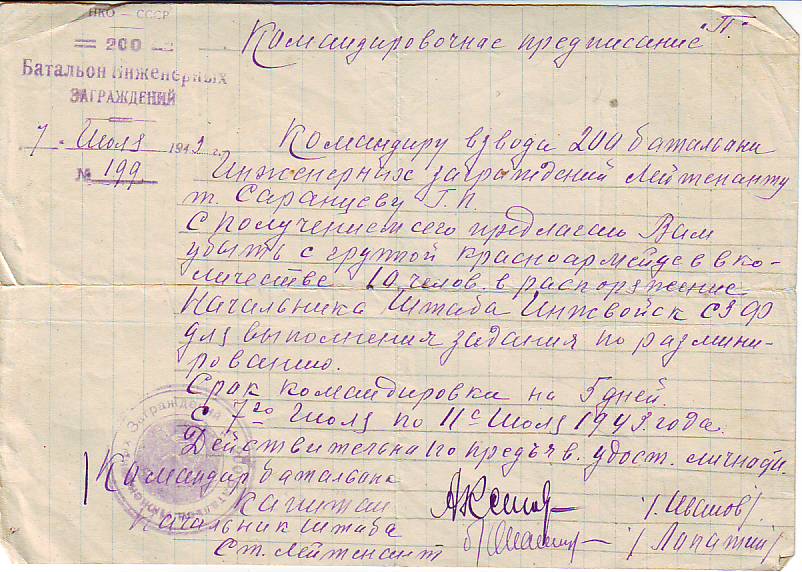 НКО — СССР
200
Батальон Инженерных
ЗАГРАЖДЕНИЙ
7 Июля 1943 г.
№ 199
"П"
Командировочное предписание
Командиру взвода 200 баталъани
Инженерных заграждений Лейтенанту
т. Саранцеву Г.П.
С получением сего предлагаю Вам
убыть с группой красноармейцев в ко-
личестве 10 челов. в распоряжение
Начальника Штаба Инжвойск СЗФ
для выполнения задания по размини-
рованию.
Срак командировки на 5 дней.
С 7го Июля по 11е Июля 1943 года.
Действительна по предъяв. удост. личнади.
Командир баталъана
Капитан /Иванов/
Начальник штаба
Ст. Лейтенант /Лапаткин/